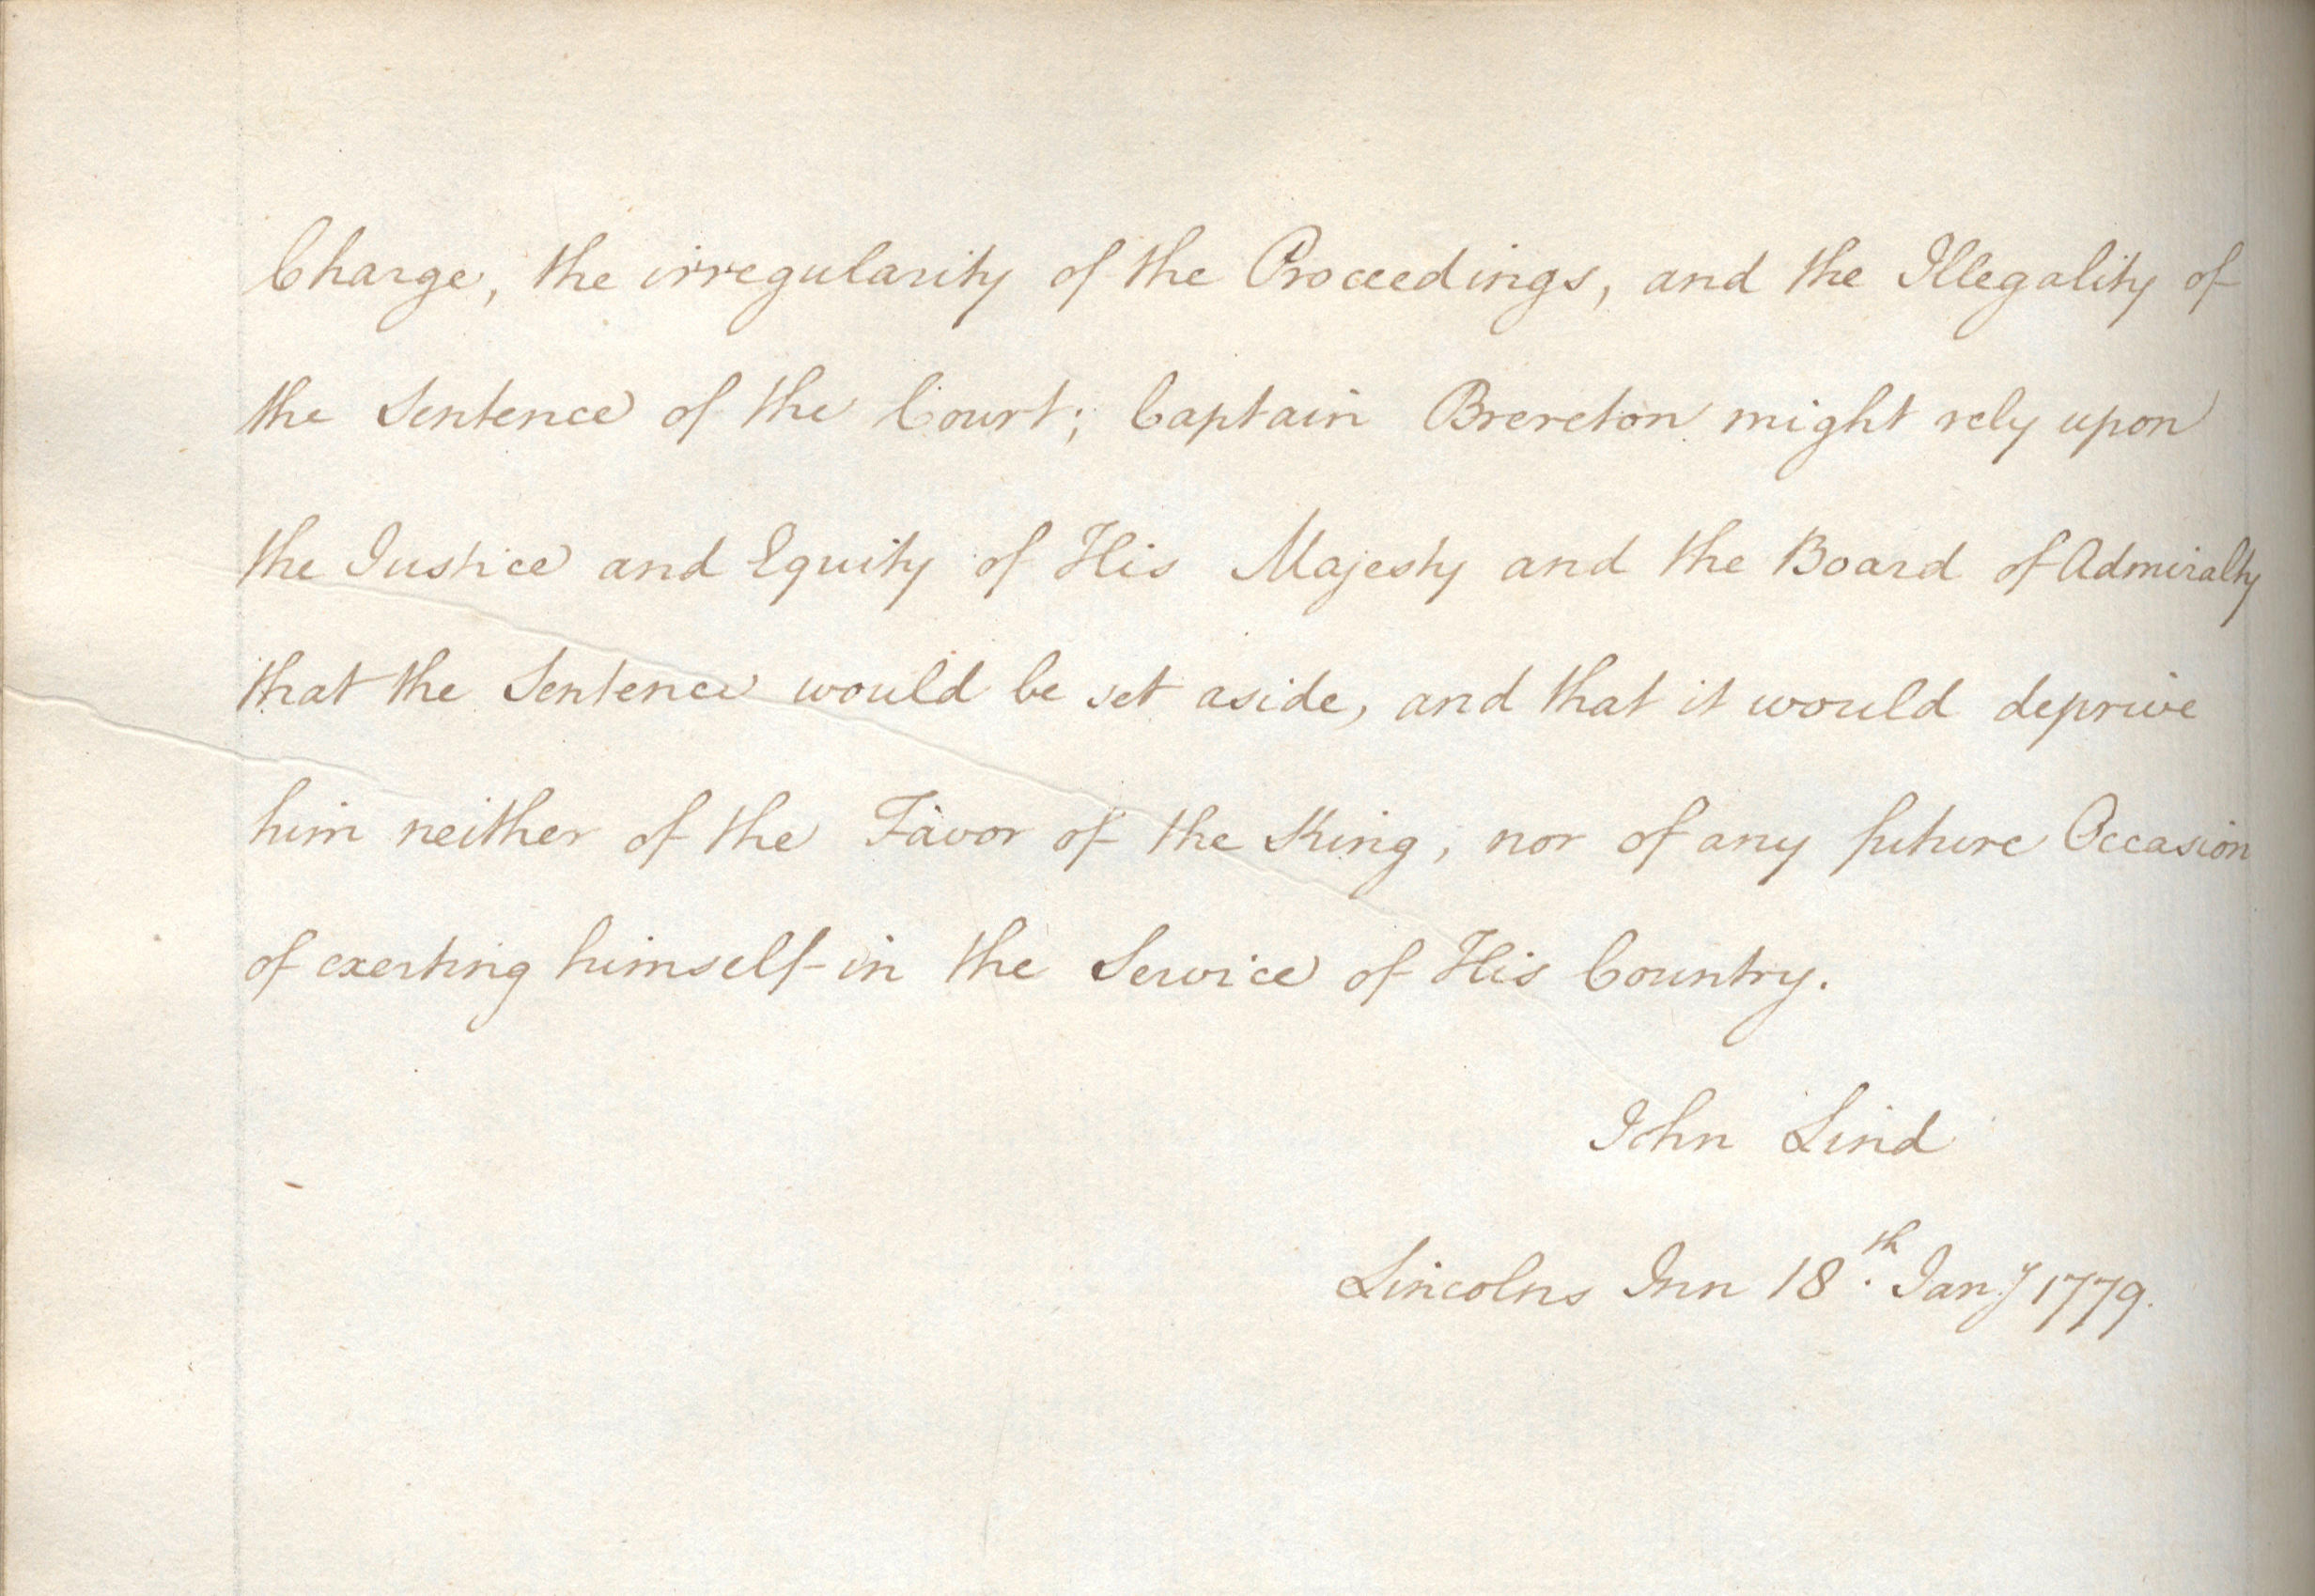 Charge, the irregularity of the Proceedings, and the Illegality of
the Sentence of the Court; Captain Brereton might rely upon
the Justice and Equity of His Majesty and the Board of Admiralty
that the Sentence would be set aside, and that it would deprive
him neither of the Favor of the King, nor of any future Occasion
of exerting himself in the Service of His Country.
John Lind
Lincolns Inn 18th. Jany 1779.